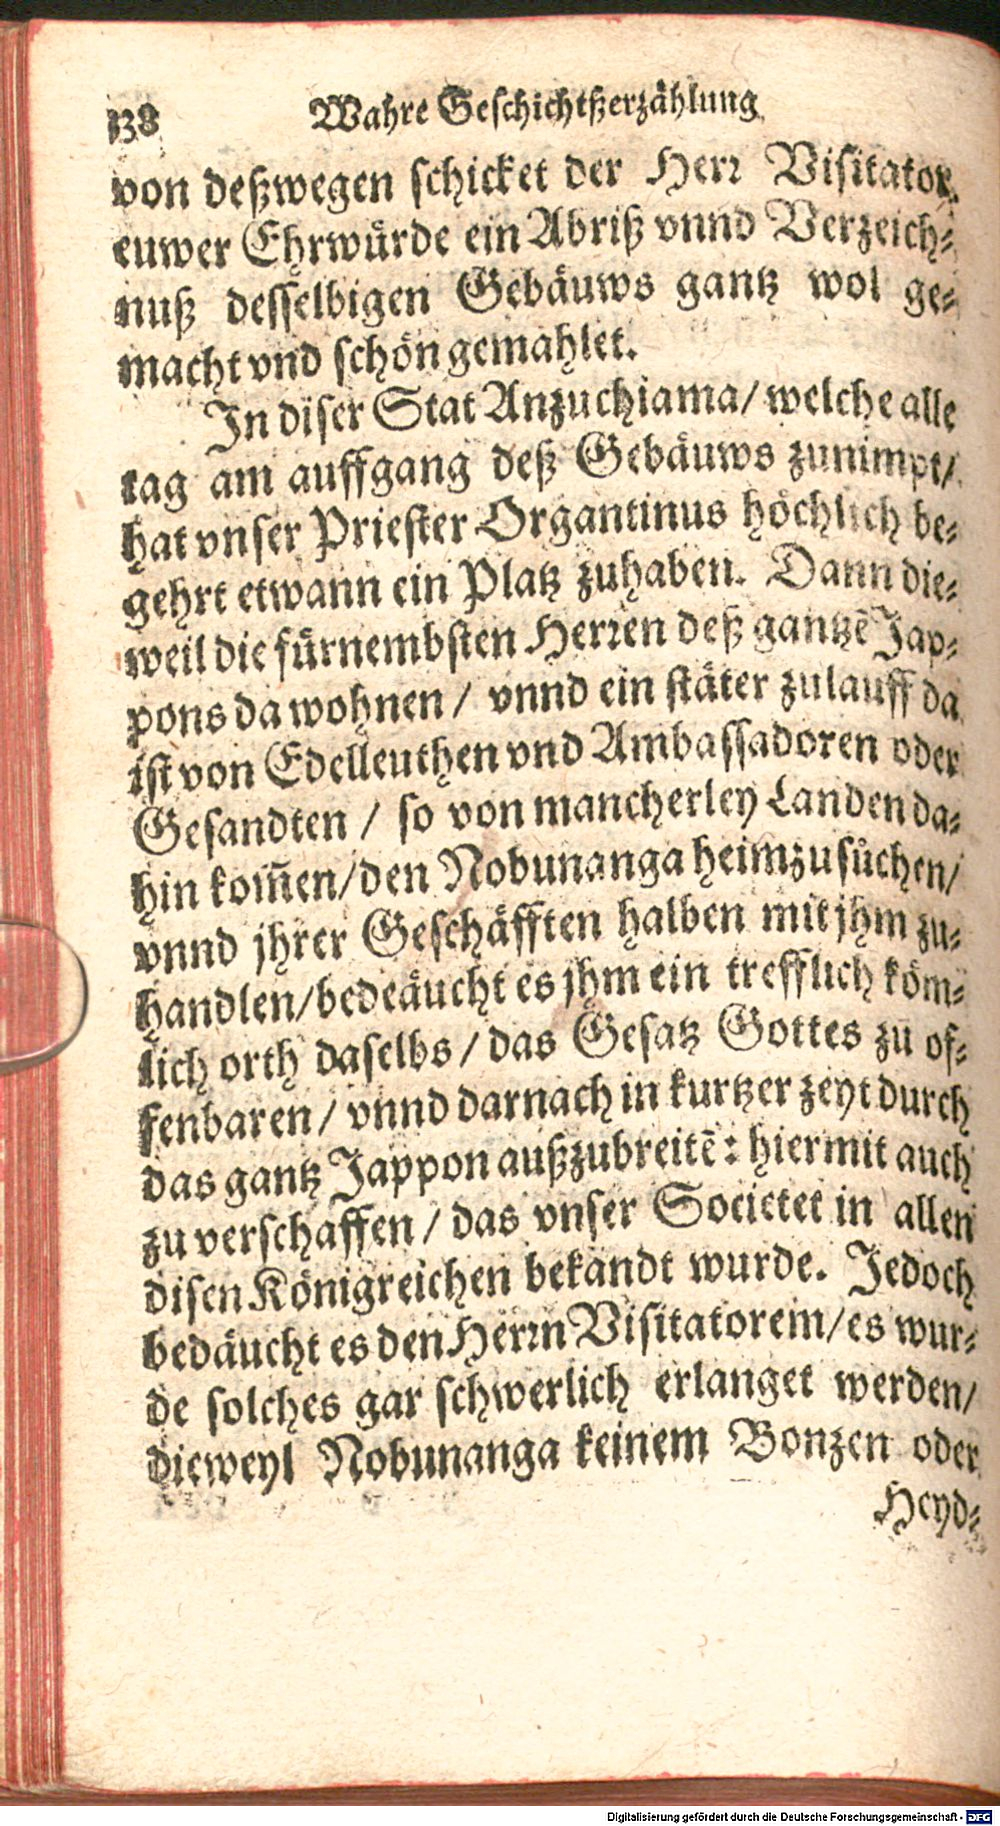 138 Wahre Geschichtßerzählung
von deßwegen schicket der Herr Visitator
euwer Ehrwürde ein Abriß vnnd Verzeich⸗
nuß desselbigen Gebäuws gantz wol ge⸗
macht vnd schön gemahlet.
In diser Stat Anzuchiama/ welche alle
tag am auffgang deß Gebäuws zunimpt/
hat vnser Priester Organtinus höchlich be⸗
gehrt etwann ein Platz zuhaben. Dann die⸗
weil die fürnembsten Herren deß gantzē Jap⸗
pons da wohnen / vnnd ein stäter zulauff da
ist von Edelleuthen vnd Ambassadoren oder
Gesandten / so von mancherley Landen da⸗
hin kom̄en/den Nobunanga heimzusuͤchen/
vnnd jhrer Geschäfften halben mit jhm zu⸗
handlen/bedeäucht es jhm ein trefflich köm⸗
lich orth daselbs / das Gesatz Gottes zu of⸗
fenbaren / vnnd darnach in kurtzer zeyt durch
das gantz Jappon außzubreitē: hiermit auch
zu verschaffen / das vnser Societet in allen
disen Königreichen bekandt wurde. Jedoch
bedäucht es den Herrn Visitatorem/es wur⸗
de solches gar schwerlich erlanget werden/
dieweyl Nobunanga keinem Bonzen oder
Heyd⸗
Digitalisierung gefördert durch die Deutsche Forschungsgemeinschaft - DFG